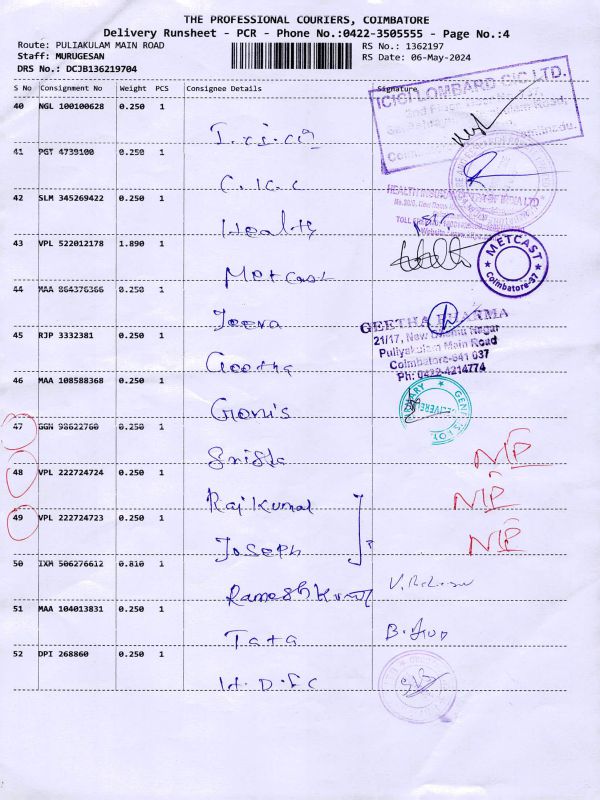 THE PROFESSIONAL COURIERS, COIMBATORE
Delivery Runsheet - PCR - Phone No.:0422-3505555 - Page No.:4
Route: PULIAKULAM MAIN ROAD RS No.: 1362197
Staff: MURUGESAN RS Date: 06-May-2024
DRS No.: DCJB136219704
S No Consignment No Weight PCS Consignee Details Signature
ICICI LOMBARD GIC LTD.
40 NGL 100100628 0.250 1
I.c.i.ci
41 PGT 4739100 0.250 1
C.K.C
42 SLM 345269422 0.250 1
HEALTH INSURANCE OF INDIA LTD
Health
43 VPL 522012178 1.890 1
METCAST
Coimbatore-37
Metcast
44 MAA 864376366 0.250 1
Jeeva
GEETHA PHARMA
21/17, New Nagar
45 RJP 3332381 0.250 1
Puliyakulam Main Road
Coimbatore-641 037
Geetha
Ph: 0422-4214774
46 MAA 108588368 0.250 1
Genis
47 GGN 98622760 0.250 1
Srista NIP
48 VPL 222724724 0.250 1
Rajkumar NIP
49 VPL 222724723 0.250 1
Joseph NIP
50 IXM 506276612 0.810 1
Ramesh Kumar
51 MAA 104013831 0.250 1
Tata
52 DPI 268860 0.250 1
H.D.F.C